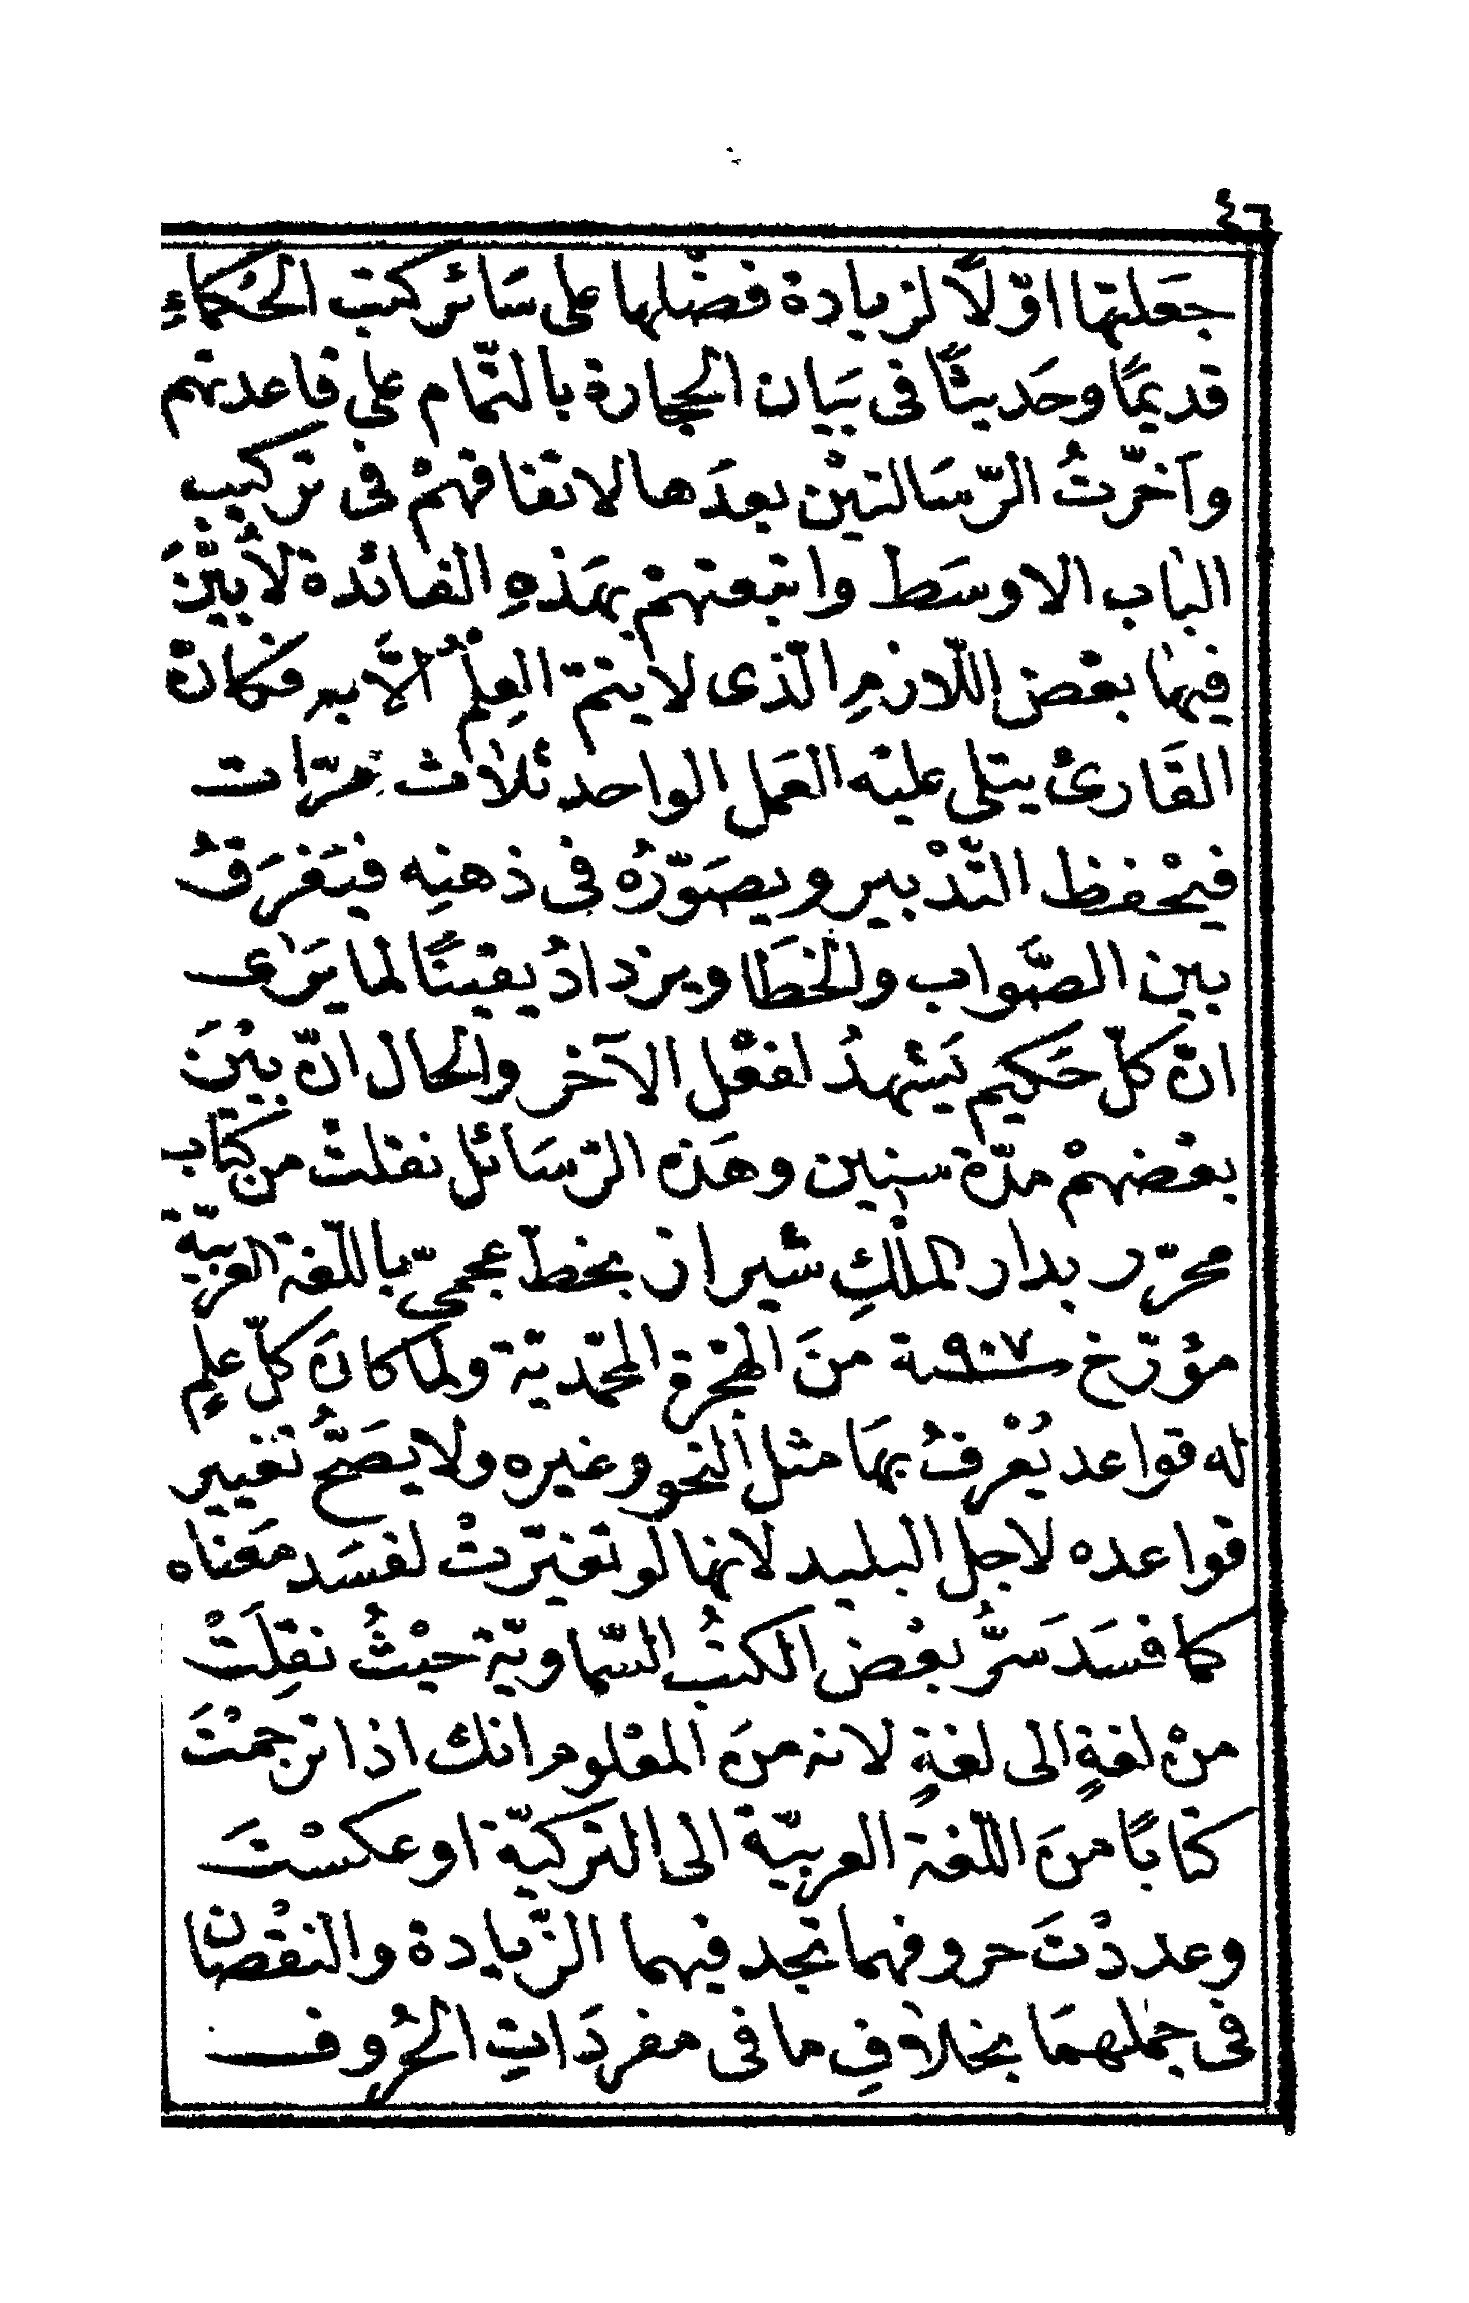 ٤٦
جَعلتها اوّلاً لزيادة فضْلها على سَائر كتب الحُكماءِ
قديمًا وحَديثًا فى بيَان الحجارة بالتّمام على قاعدتهم
وآخّرتُ الرّسَالتينْ بعدَها لاتفاقهمْ فى تركيب
الباب الاوسَط واتبعتهمْ بهَذهِ الفائدة لاُبيّنَ
فيها بعْض اللّازمِ الّذى لا يتمّ العِلمُ الاّ به فكانّ
القَارئ يتلى عليْه العَمل الواحد ثلاث مرّات
فيحْفظ التّدْبير ويصَوّرُه فى ذهنِه فيَفرَقُ
بين الصَّواب والخطَا ويزدادُ يقينًا لما يرَاى
انّ كلّ حَكيم يَشهدُ لفعْل الآخر والحال انّ بيْنَ
بعْضهمْ مدّة سنين وهَذه الرّسَائل نقلتْ من كتاب
محرّر بدار الملْكِ شيراز بخطّ عجمىّ باللغة العربيّة
مؤرّخ سنة ٩٠٧ منَ الهجْرة المحمّدية ولمّا كانَ كلّ علمٍ
له قواعد يُعْرفُ بهَا مثل النحو وغيره ولا يصَحُّ تغيير
قواعده لاجل البليد لانها لو تغيّرتْ لفسَد مَعناه
كما فسَدَ سرُّ بعْض الكتُب السّماويّة حيْثُ نقِلَتْ
منْ لغةٍ الى لغةٍ لانه منَ المعْلوم انك اذا ترجمْتَ
كتابًا منَ اللّغة العربيّة الى التركيّة او عكسْتَ
وعددْتَ حروفهما تجد فيهما الزّيادة والنقْصان
فى جملهمَا بخلافِ ما فى مفردَاتِ الحُروف